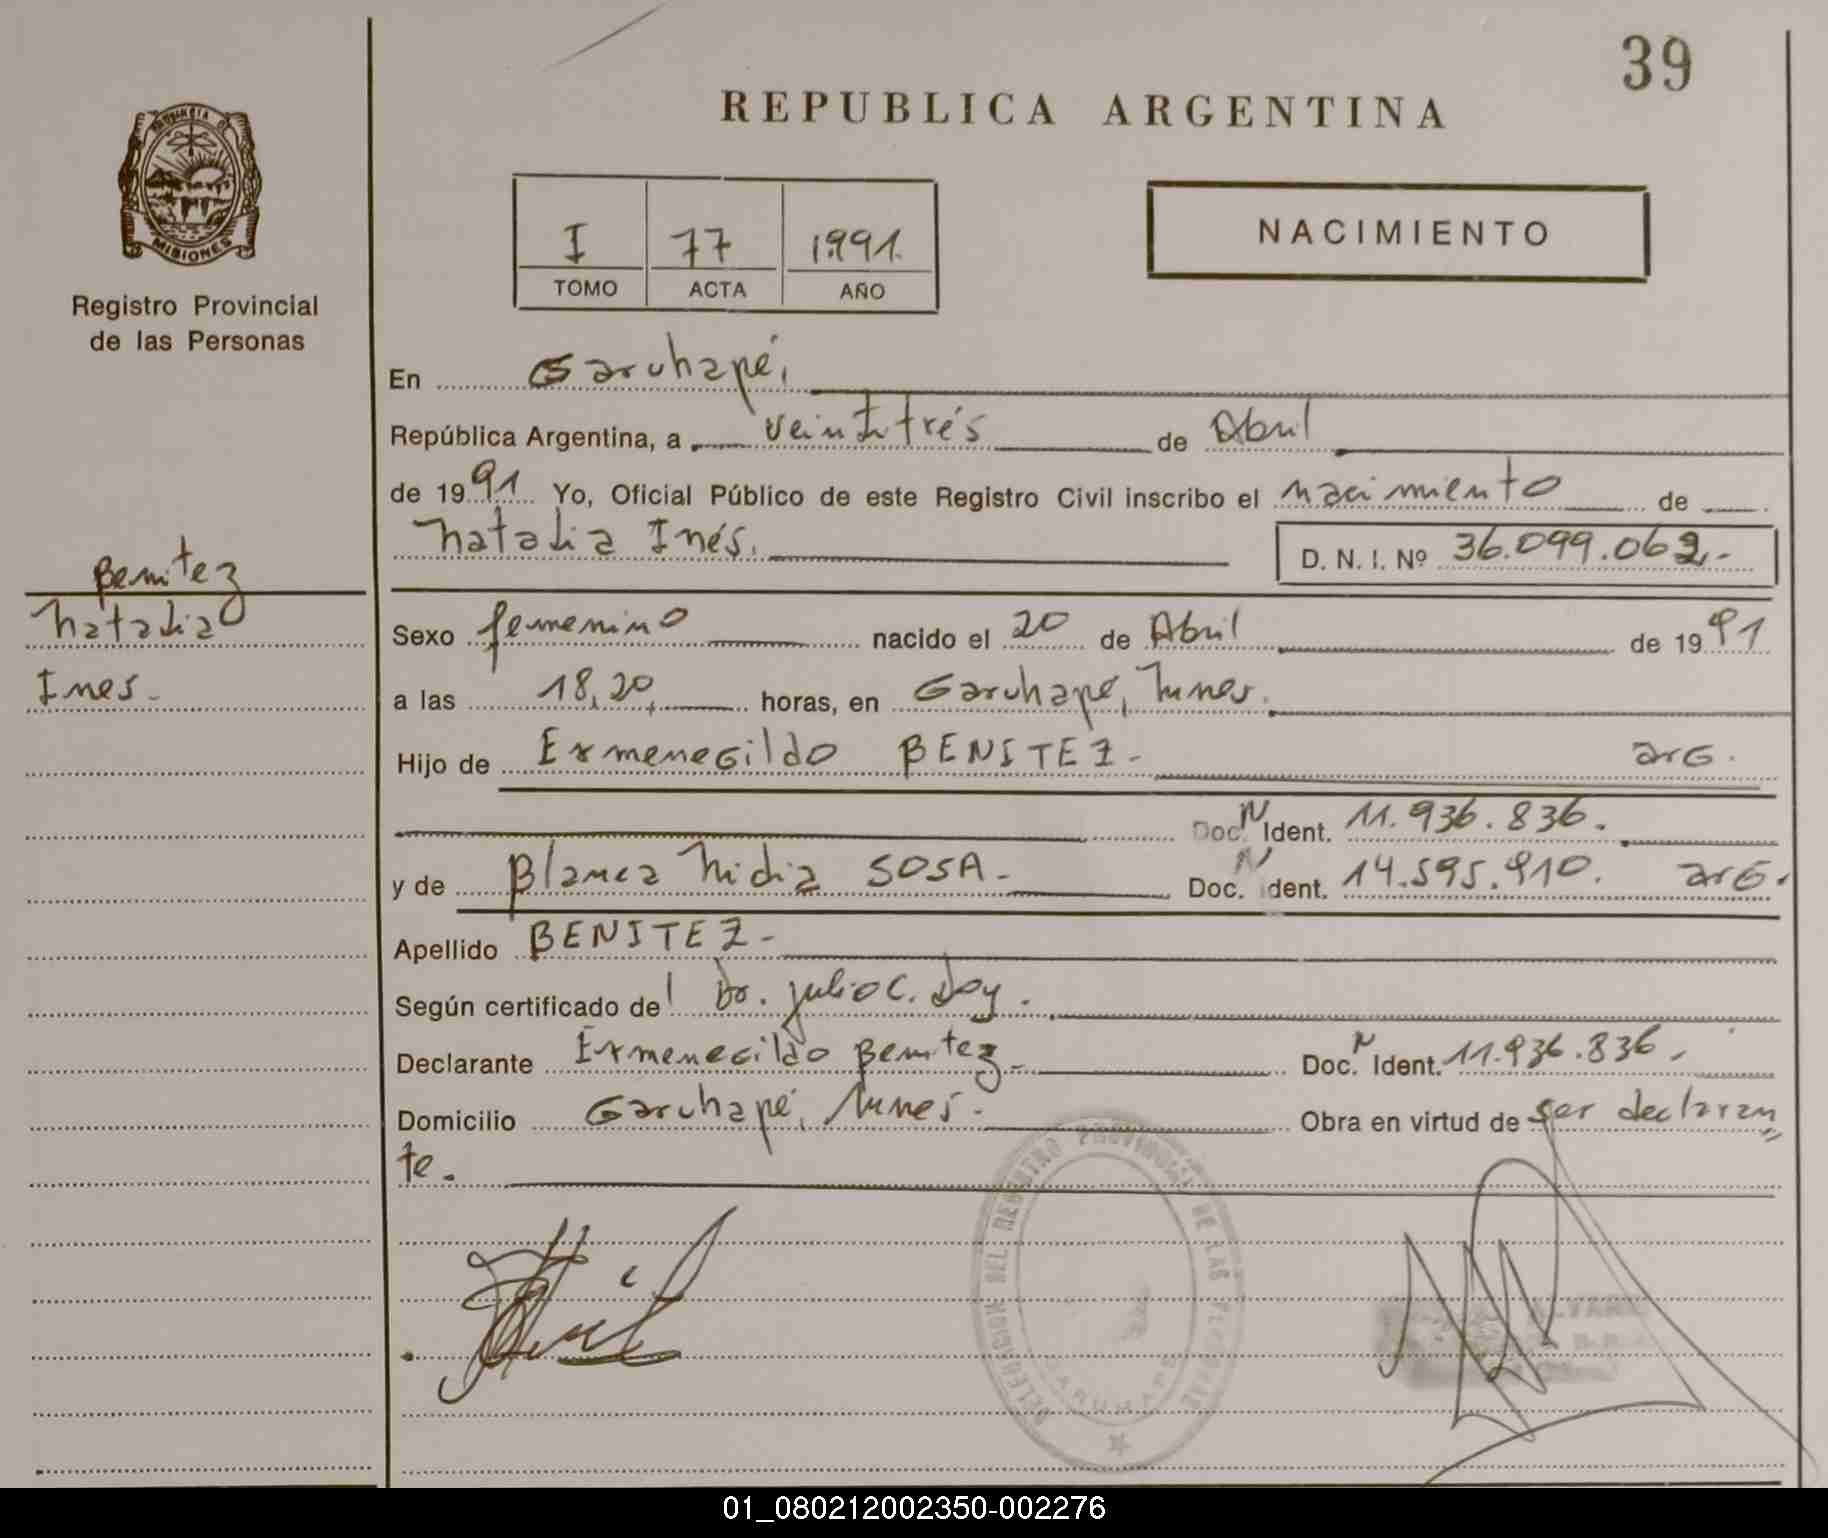 39
REPUBLICA ARGENTINA
PROVINCIA DE
MISIONES
Registro Provincial
de las Personas
I 77 1991.
TOMO ACTA AÑO
NACIMIENTO
En Garuhapé,
República Argentina, a veintitrés de Abril
de 1991 Yo, Oficial Público de este Registro Civil inscribo el nacimiento de
Natalia Inés. D. N. I. Nº 36.099.062.-
Benitez
Natalia
Ines.-
Sexo femenino nacido el 20 de Abril de 1991
a las 18,20, horas, en Garuhapé,
Hijo de Ermenegildo BENITEZ- arG.
Doc. N Ident. 11.936.836.
y de Blanca Nidia SOSA- Doc. N Ident. 14.595.910. arG.
Apellido BENITEZ-
Según certificado del Dr. Julio C. Doy.
Declarante Ermenegildo Benitez- Doc. N Ident. 11.936.836.
Domicilio Garuhapé, Obra en virtud de ser declaran
te.
DELEGACION DEL REGISTRO PROVINCIAL DE LAS PERSONAS
GARUHAPE
01_080212002350-002276